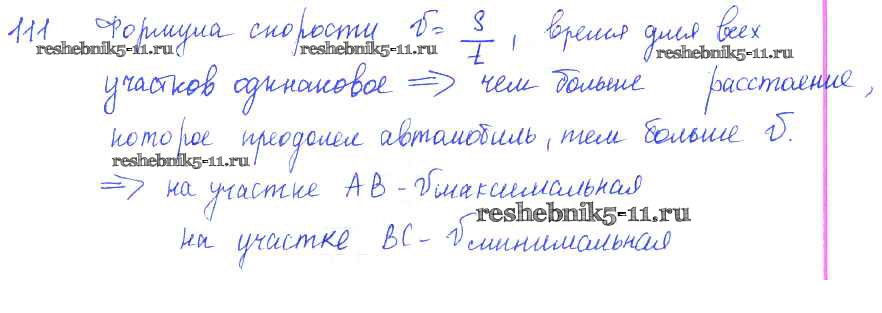 111 Формула скорости v = S/t, время для всех
reshebnik5-11.ru reshebnik5-11.ru reshebnik5-11.ru
участков одинаковое => чем больше расстояние,
которое преодолел автомобиль, тем больше v.
reshebnik5-11.ru
=> на участке AB - v максимальная
reshebnik5-11.ru
на участке BC - v минимальная